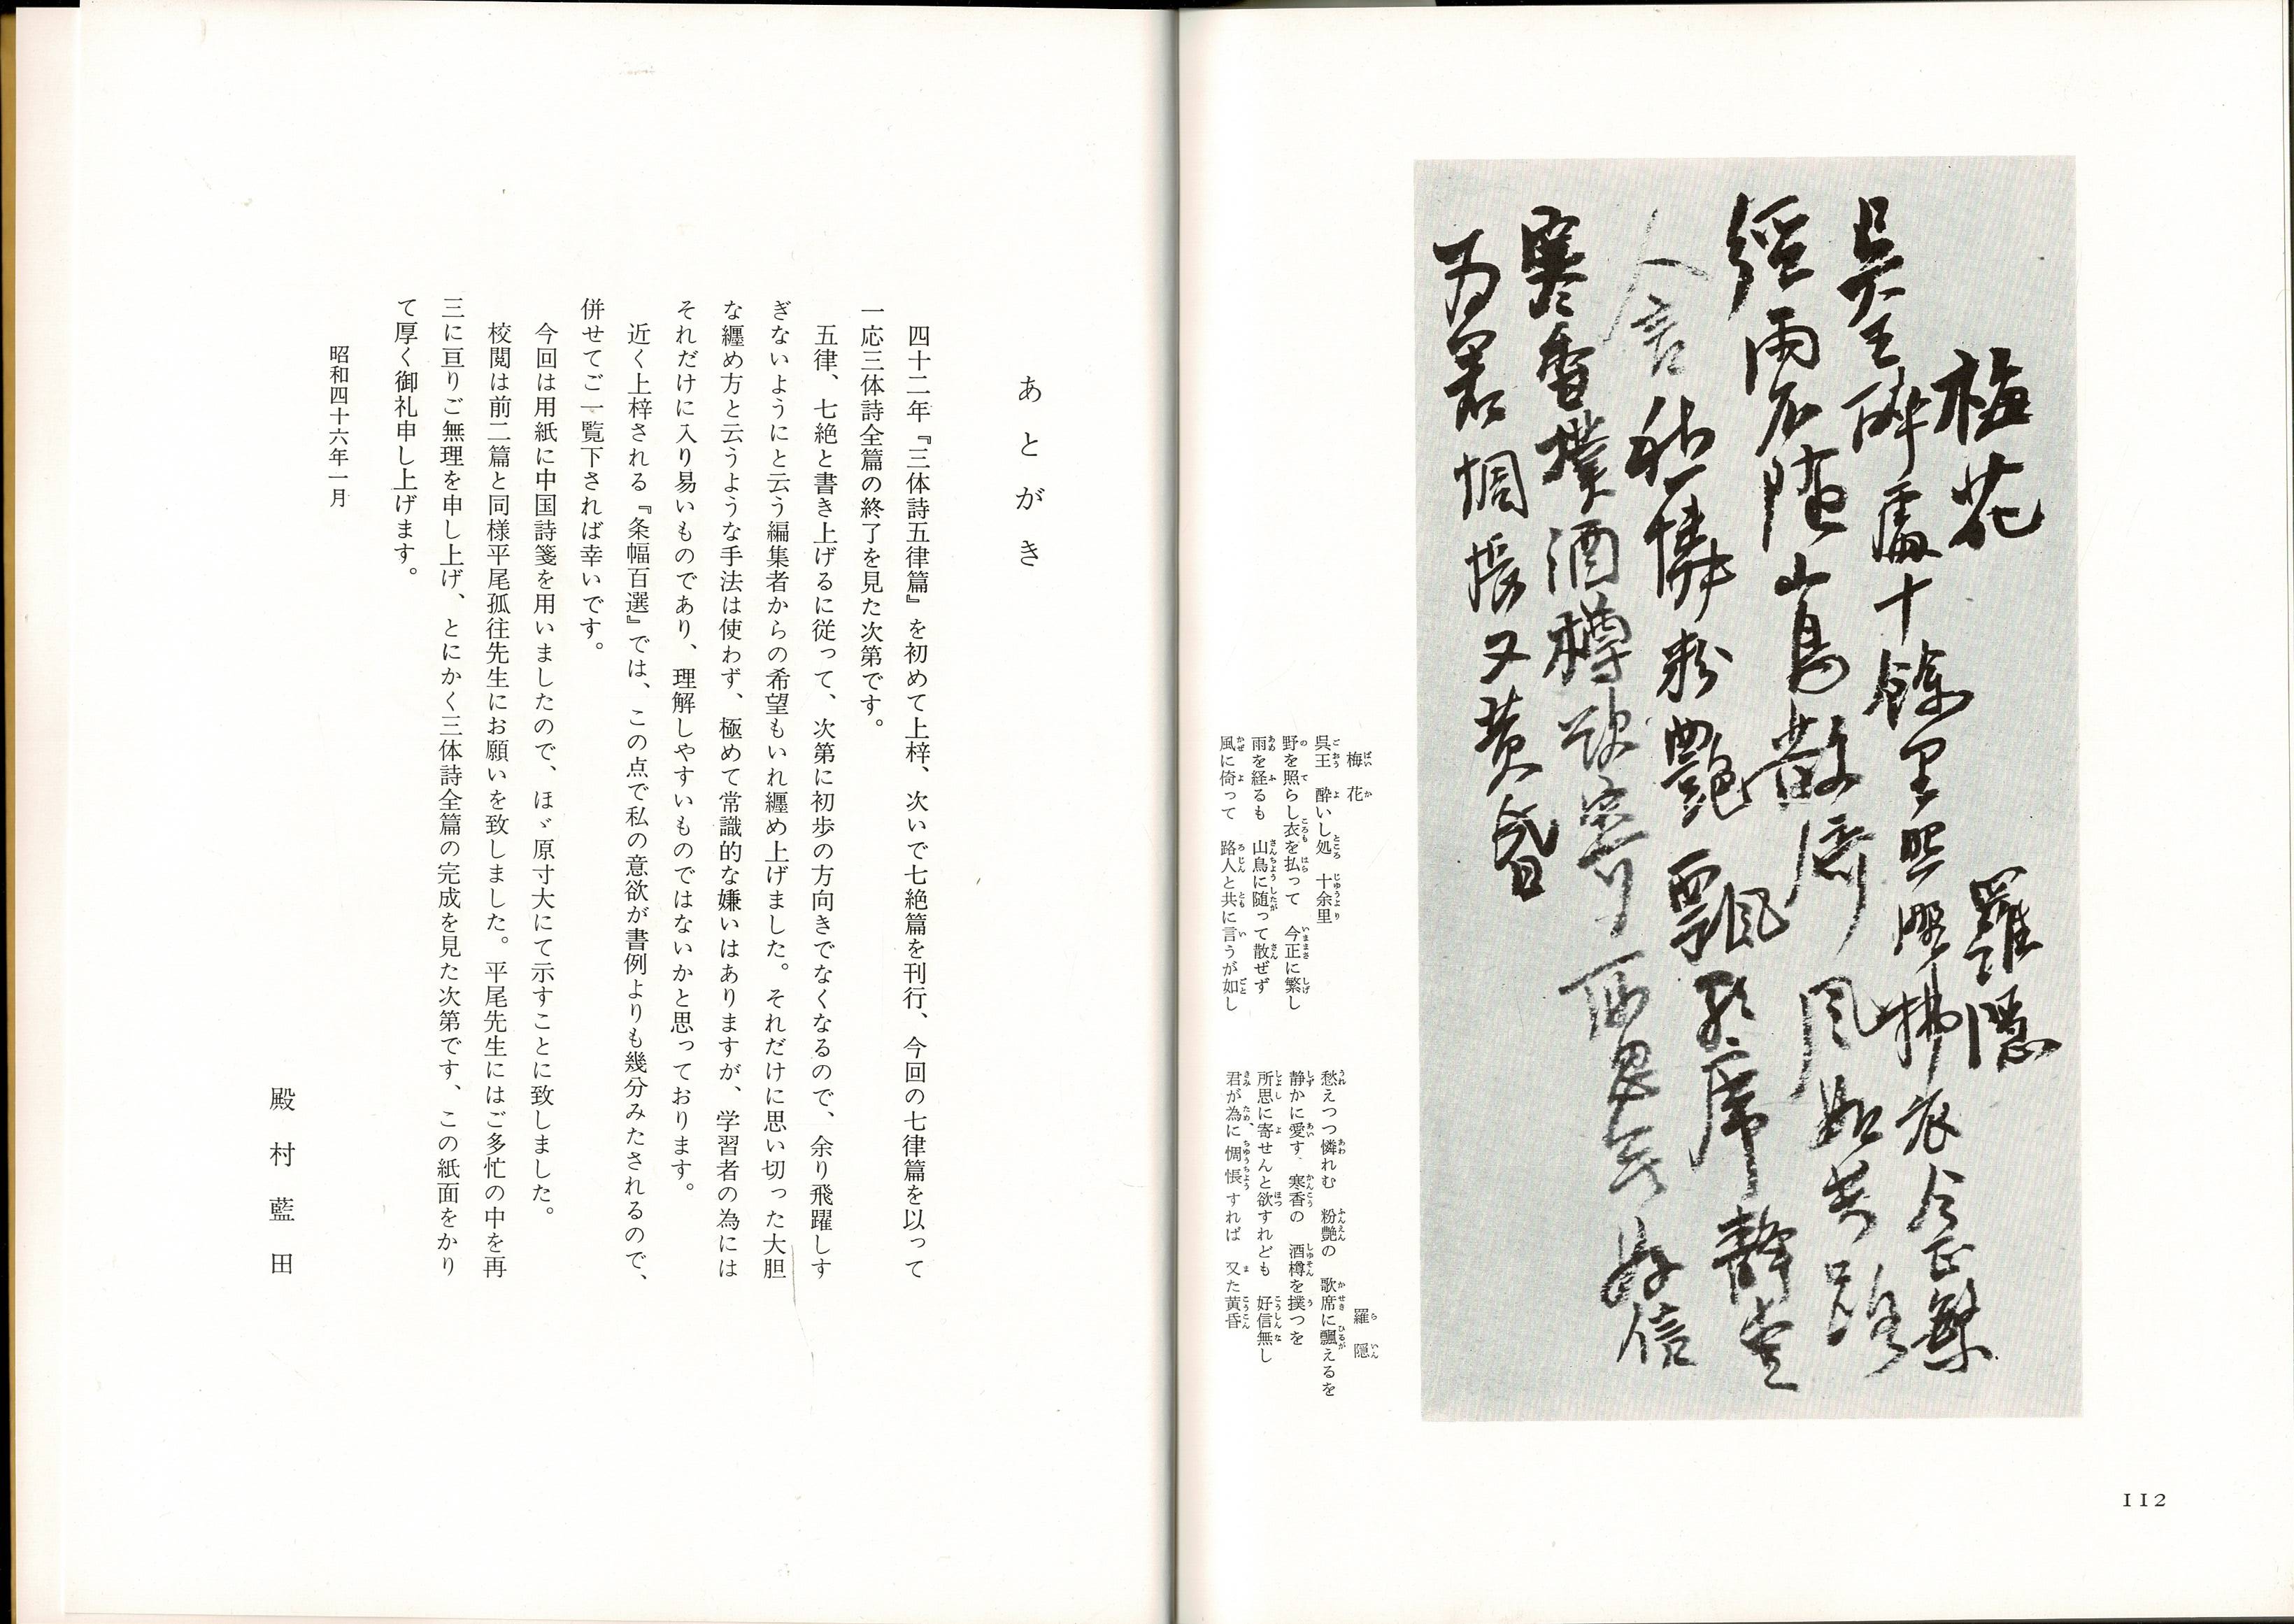 梅花 羅隱
吳王醉處十餘里照野拂衣今正繁
經雨不隨山鳥散倚風如共路
人言愁憐粉艷飄歌席靜愛
寒香撲酒樽欲寄所思無好信
為君惆悵又黄昏
梅花 羅隠
呉王 酔いし処 十余里
野を照らし衣を払って 今正に繁し
雨を経るも 山鳥に随って散ぜず
風に倚って 路人と共に言うが如し
愁えつつ憐れむ 粉艶の 歌席に飄えるを
静かに愛す 寒香の 酒樽を撲つを
所思に寄せんと欲すれども 好信無し
君が為に惆悵すれば 又た黄昏
112
あとがき
四十二年『三体詩五律篇』を初めて上梓、次いで七絶篇を刊行、今回の七律篇を以って
一応三体詩全篇の終了を見た次第です。
五律、七絶と書き上げるに従って、次第に初歩の方向きでなくなるので、余り飛躍しす
ぎないようにと云う編集者からの希望もいれ纏め上げました。それだけに思い切った大胆
な纏め方と云うような手法は使わず、極めて常識的な嫌いはありますが、学習者の為には
それだけに入り易いものであり、理解しやすいものではないかと思っております。
近く上梓される『条幅百選』では、この点で私の意欲が書例よりも幾分みたされるので、
併せてご一覧下されば幸いです。
今回は用紙に中国詩箋を用いましたので、ほゞ原寸大にて示すことに致しました。
校閲は前二篇と同様平尾孤往先生にお願いを致しました。平尾先生にはご多忙の中を再
三に亘りご無理を申し上げ、とにかく三体詩全篇の完成を見た次第です、この紙面をかり
て厚く御礼申し上げます。
昭和四十六年一月
殿村藍田